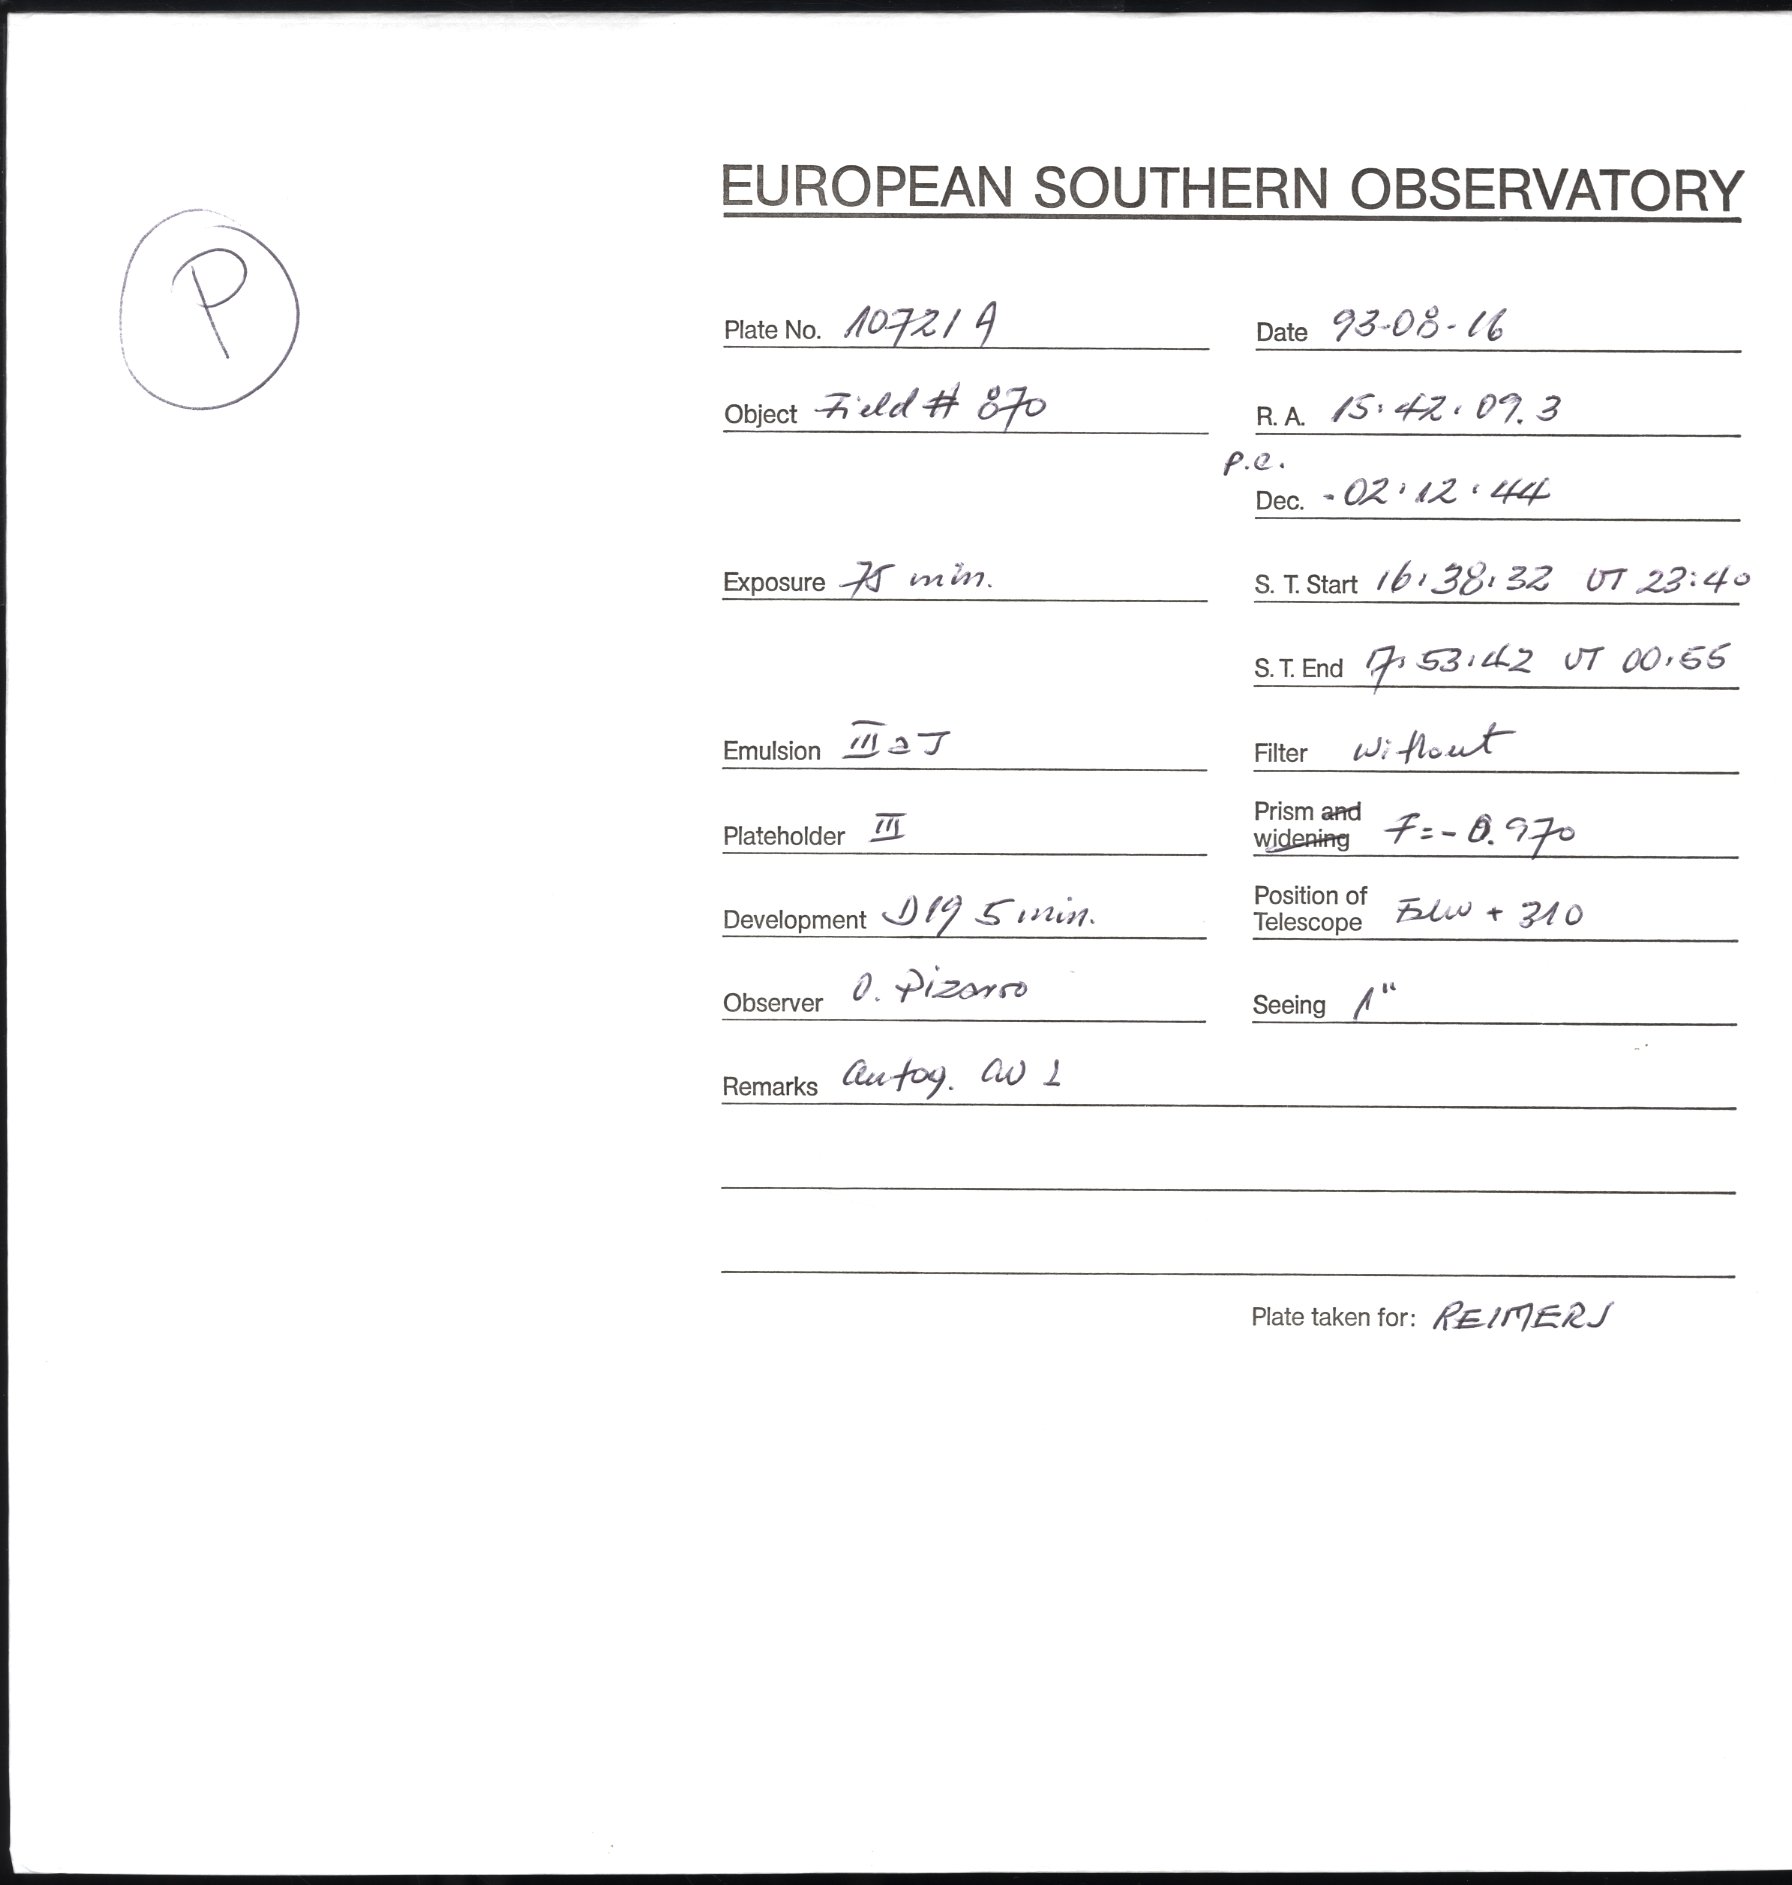 EUROPEAN SOUTHERN OBSERVATORY
P
Plate No. 10721 A Date 93-08-16
Object Field # 870 R. A. 15:42:09.3
p.e.
Dec. -02:12:44
Exposure 75 min. S. T. Start 16:38:32 UT 23:40
S. T. End 17:53:42 UT 00:55
Emulsion III a J Filter without
Plateholder III Prism and widening F=-0.970
Development D19 5 min. Position of Telescope + 310
Observer O. Pizarro Seeing 1"
Remarks autog.
Plate taken for: REIMERS